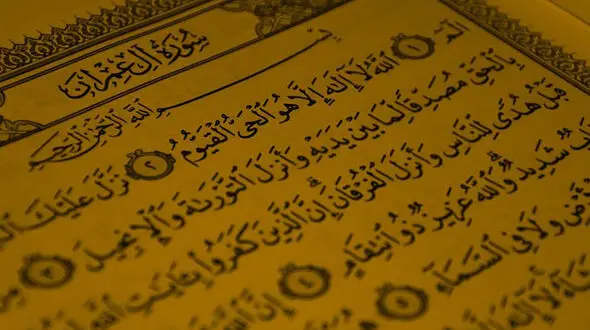 سُورَةُ آلِ عِمْرَانَ
بِسْمِ ٱللَّهِ ٱلرَّحْمَٰنِ ٱلرَّحِيمِ
الٓمٓ ١ ٱللَّهُ لَآ إِلَٰهَ إِلَّا هُوَ ٱلْحَىُّ ٱلْقَيُّومُ ٢ نَزَّلَ عَلَيْكَ
بِٱلْحَقِّ مُصَدِّقًا لِّمَا بَيْنَ يَدَيْهِ وَأَنزَلَ ٱلتَّوْرَىٰةَ وَٱلْإِنجِيلَ ٣
قَبْلُ هُدًى لِّلنَّاسِ وَأَنزَلَ ٱلْفُرْقَانَ ۗ إِنَّ ٱلَّذِينَ كَفَرُوا۟ بِـَٔايَٰتِ ٱللَّهِ
شَدِيدٌ ۗ وَٱللَّهُ عَزِيزٌ ذُو ٱنتِقَامٍ ٤ إِنَّ
وَلَا فِى ٱلسَّمَآءِ ٥
لَآ إِلَٰهَ